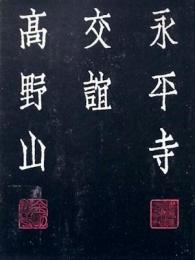 永平寺
交誼
高野山